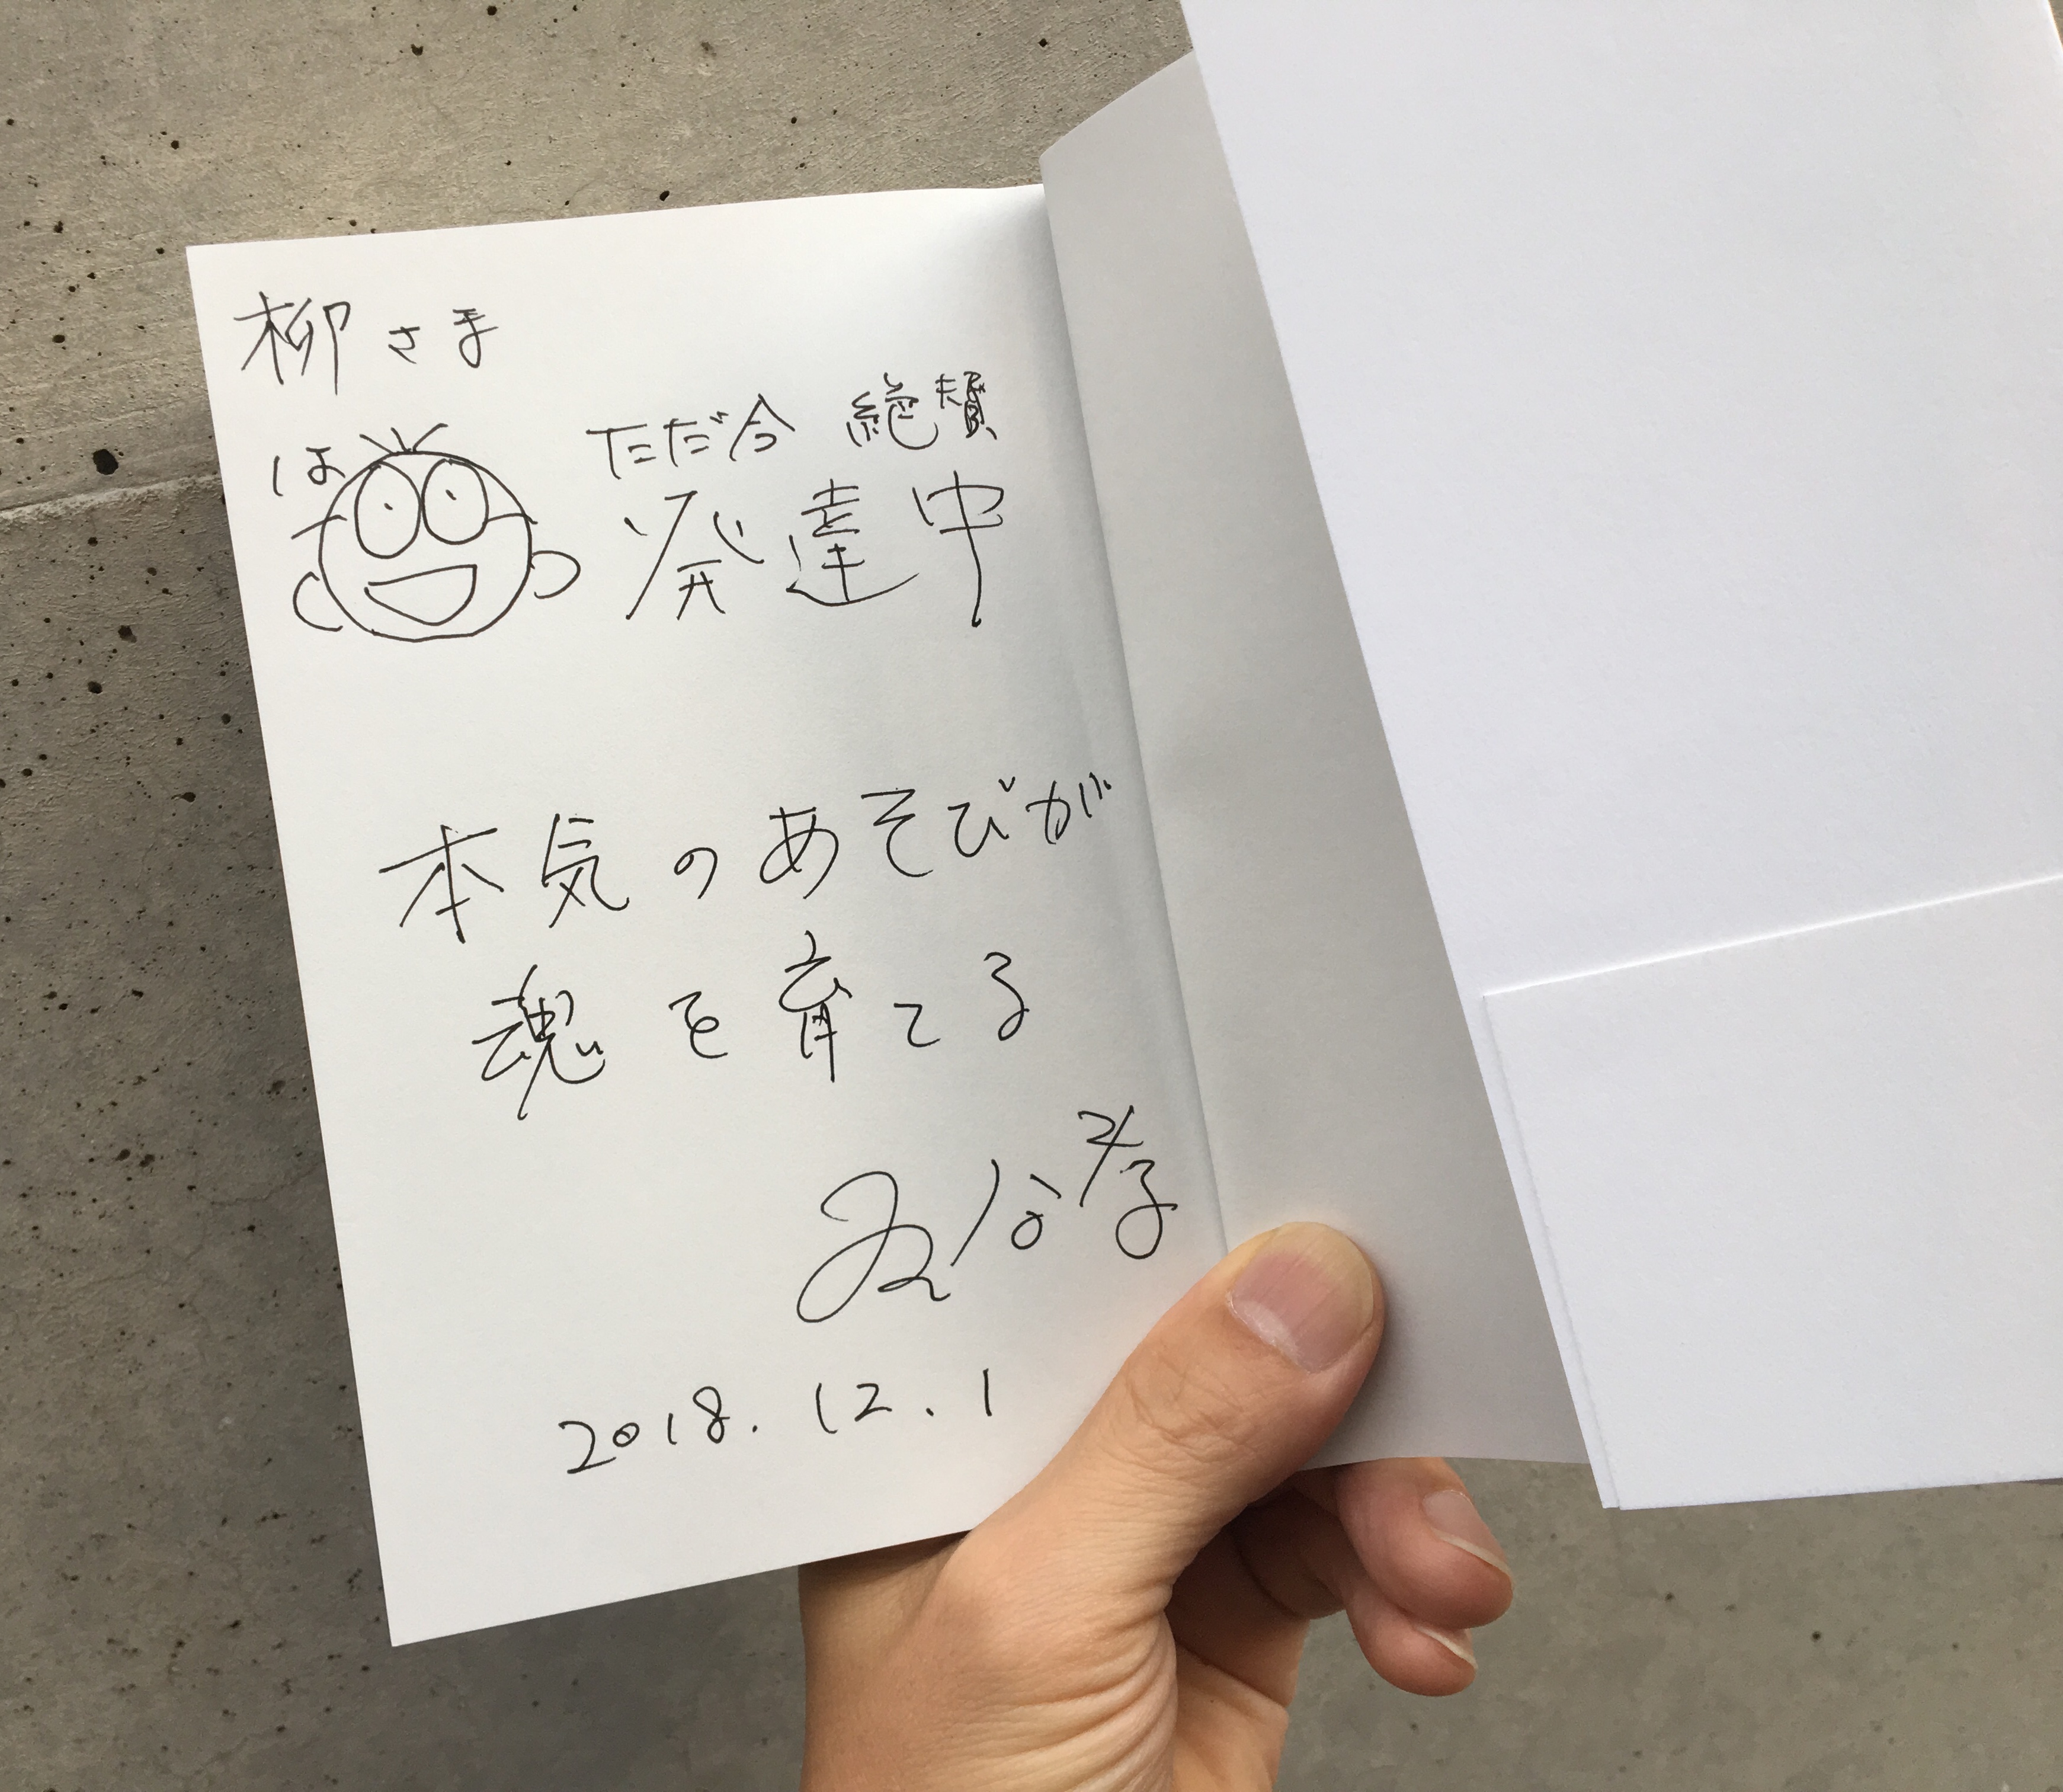 柳さま
は
ただ今 絶賛
発達中
本気のあそびが
魂を育てる
2018.12.1